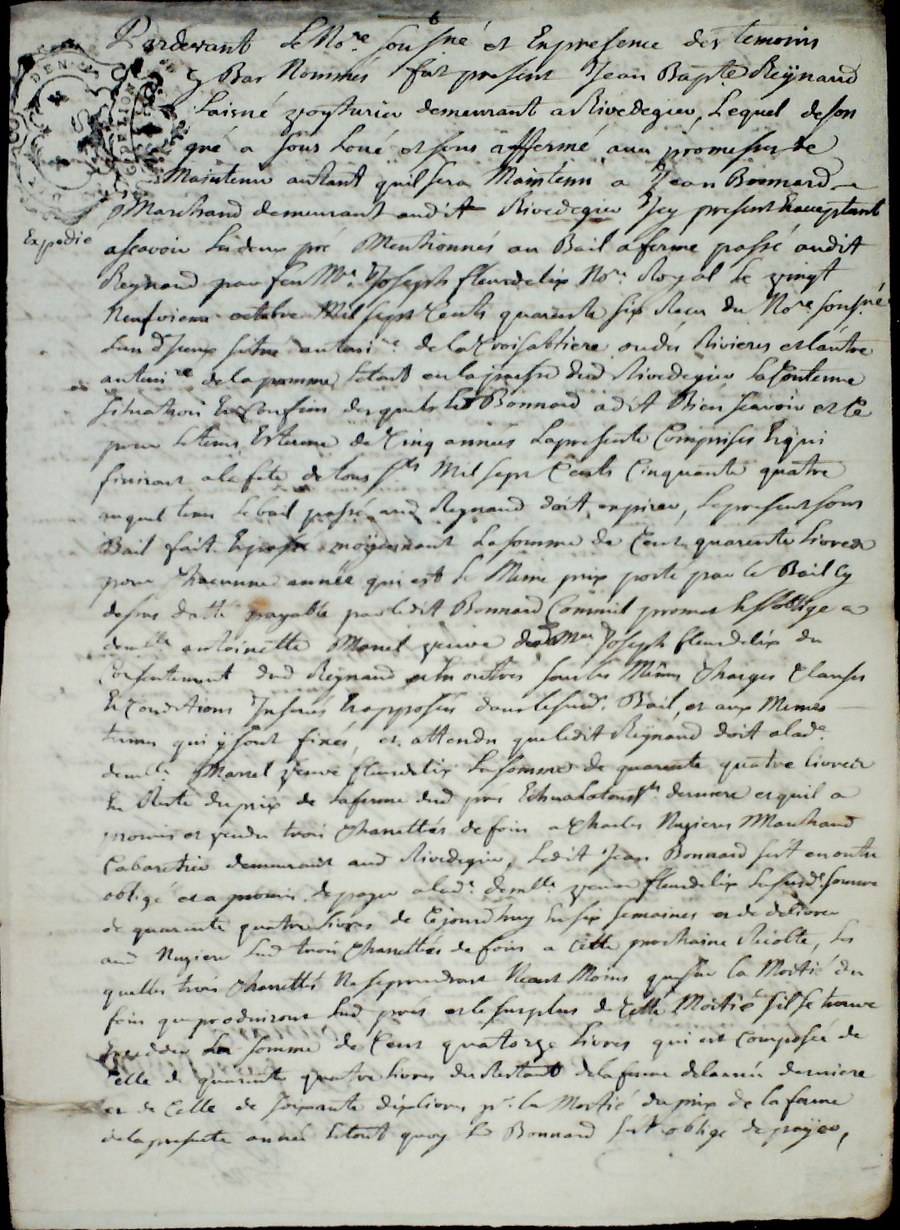 6
Pardevant Le No.re Sousné et En presence des temoins
y Bas Nommés fut present Jean Bapte Reÿnaud
Laisné voysturier demeurant a Rivedegier, Lequel de son
gré a Sous Loué et sous affermé avec promesse de
Maintenir autant quil sera Maintenu a Jean Bonnard
Marchand demeurant audit Rivedegier Icy present Et acceptant
Expedié
ascavoir Les deux pré Mentionnés au Bail a ferme passé audit
Reynaud par feu Mr. Joseph fleurdelix No.re Royal Le vingt
Neufvieme octobre Mil sept Cents quarante six Receu du No.re sousné
Lun d'Iceux situé au terri.re de la Croisattiere ou des Rivieres et Lautre
au terri.re de la pomme, Le tout en la psse dud Rivedegier La Contenue
Situation Et Confins desquels Led Bonnard a dit Bien scavoir et Ce
pour Le tems Et terme de Cinq années La presente Comprises Et qui
finiront a la fete de tous Sts Mil sept Cents Cinquante quatre
auquel tems Le bail passé aud Reynaud doit expirer, Le present sous
Bail fait Et passé moÿennant La somme de Cent quarente Livres
pour Chacunne année qui est Le Meme prix porté par le Bail cy
dessus datté payable par Ledit Bonnard Comme il promet Et s'oblige a
demlle antoinette Marrel veuve dud Mre Joseph fleurdelix du
Consentement dud Reynaud et En outres sous les Mêmes Charges Clauses
Et Conditions Inserés Et apposées dans le susd. Bail, et aux Memes
termes qui y sont fixés, et attendu que Ledit Reynaud doit a lad.
demlle Marrel veuve fleurdelix La somme de quarente quatre livres
En Reste du prix de La ferme dud prés Echu a La touss.ts derniere et quil a
promis et vendu trois Charettées de foin a Charles Nugieres Marchand
Cabaretier demeurant aud Rivedegier, Ledit Jean Bonnard s'est en outre
obligé et a promis de payer a lad. demlle veuve fleurdelix La susd. somme
de quarente quatre Livres de Cejourdhuy En six semaines et de delivrer
aud Nugiere Lesd trois Charettées de foin a Cette prochaine Recolte, Les
quelles trois Charettés Ne se prendront Neant Moins que sur la Moitié du
foin que produiront Lesd prés et le surplus de Cette Moitié s'il se trouve
La somme de Cent quatorze Livres qui est Composée de
Celle de quarente quatre livres du Restant de la ferme de lannée derniere
et de Celle de soixante dix livres pr. la Moitié du prix de la ferme
de la presente année Le tout quoy Led Bonnard s'est obligé de payer,